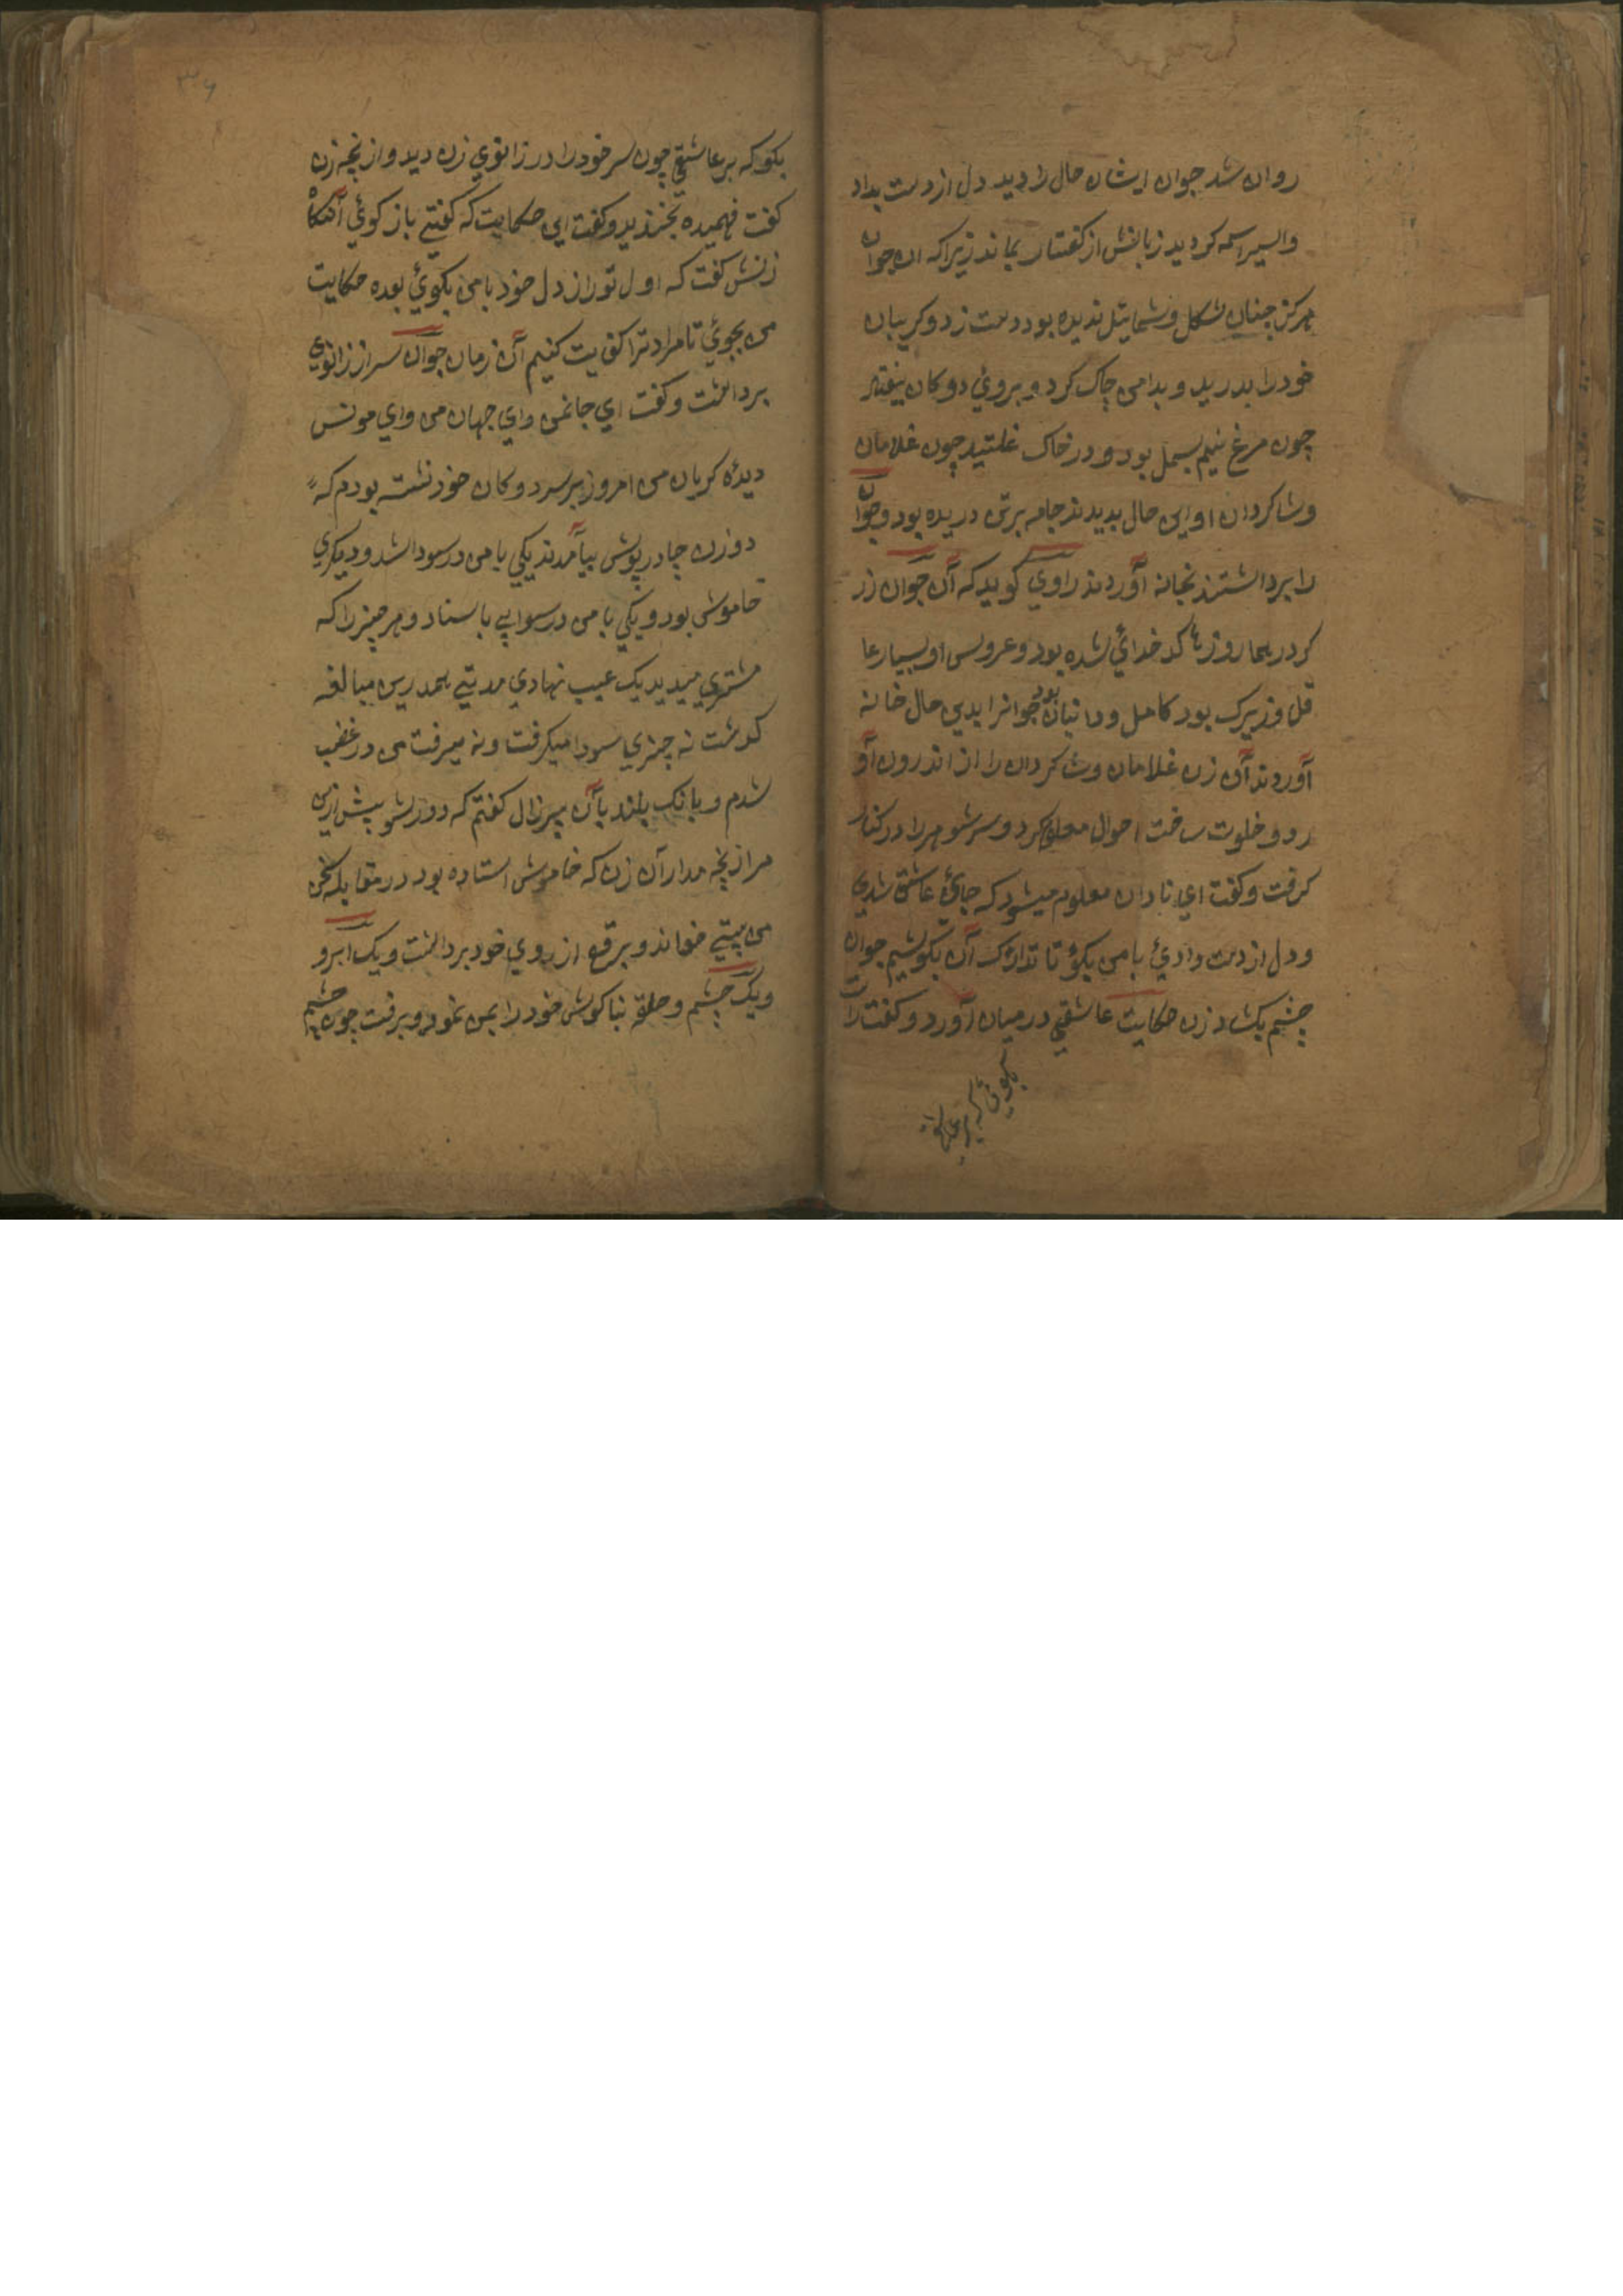 روان شد جوان ایشان حال را دید دل از دست بداد
واسیراسمه کردید زبانش از کفتار بماند زیرا که ان جوان
هرکز چنان شکل و شمایل ندیده بود دست زد و کریبان
خود را بدرید و بدامن چاک کرد و بروی دوکان بیفتاد
چون مرغ نیم بسمل بود و در خاک غلتید چون غلامان
و شاکردان او این حال بدیدند جامه برتن دریده بود و جوان
را برداشتند بخانه آوردند راوی کوید که آن جوان زر
کر در بهما روزها کدخدائی شده بود و عروس او بسیار عا
قل و زیرک بود کامل و دانیان بود جوانرا بدین حال خانه
آوردند آن زن غلامان و شاکردان را از اندرون آو
رد و خلوت ساخت احوال معلوم کرد و سر شوهر را در کنار
کرفت و کفت ای نادان معلوم میشود که جائ عاشق شدی
و دل از دست دادئ با من بکو تا تدارک آن بکوشیم جوان
چشم بکشاد زن حکایت عاشقی در میان آورد و کفت راست
بکوئ که بر عاشق
۳۶
بکو که بر عاشقی چون سر خود را در زانوی زن دید و از نچه زن
کفت فهمیده بخندید و کفت این حکایت که کفتی باز کوئی آنکاه
زنش کفت که اول تو راز دل خود با من بکوئ بعده حکایت
من بجوئ تا مراد ترا کفایت کنیم آن زمان جوان سر از زانوی
برداشت و کفت ای جانمن وای جهان من وای مونس
دیده کریان من امروز بر سر دوکان خود نشسته بودم که
دو زن چادر پوش بیامدند یکی با من در سودا شد و دیکری
خاموش بود و یکی با من در سوایی باستاد و هر چیز را که
مشتری میدید یک عیب نهادی مدتی بهمدرین مبالغه
کذشت نه چیزی سودا میکرفت و نه میرفت من در غضب
شدم و بانک بلند با آن پیرزال کفتم که دور شو بیش ازین
مرا رنجه مدار آن زن که خاموش استاده بود در مقابله سخن
من بیتی خواند و برقع از روی خود برداشت و یک ابرو
و یک چشم و حلقه بناکوش خود را بمن نمود و برفت چون چشم